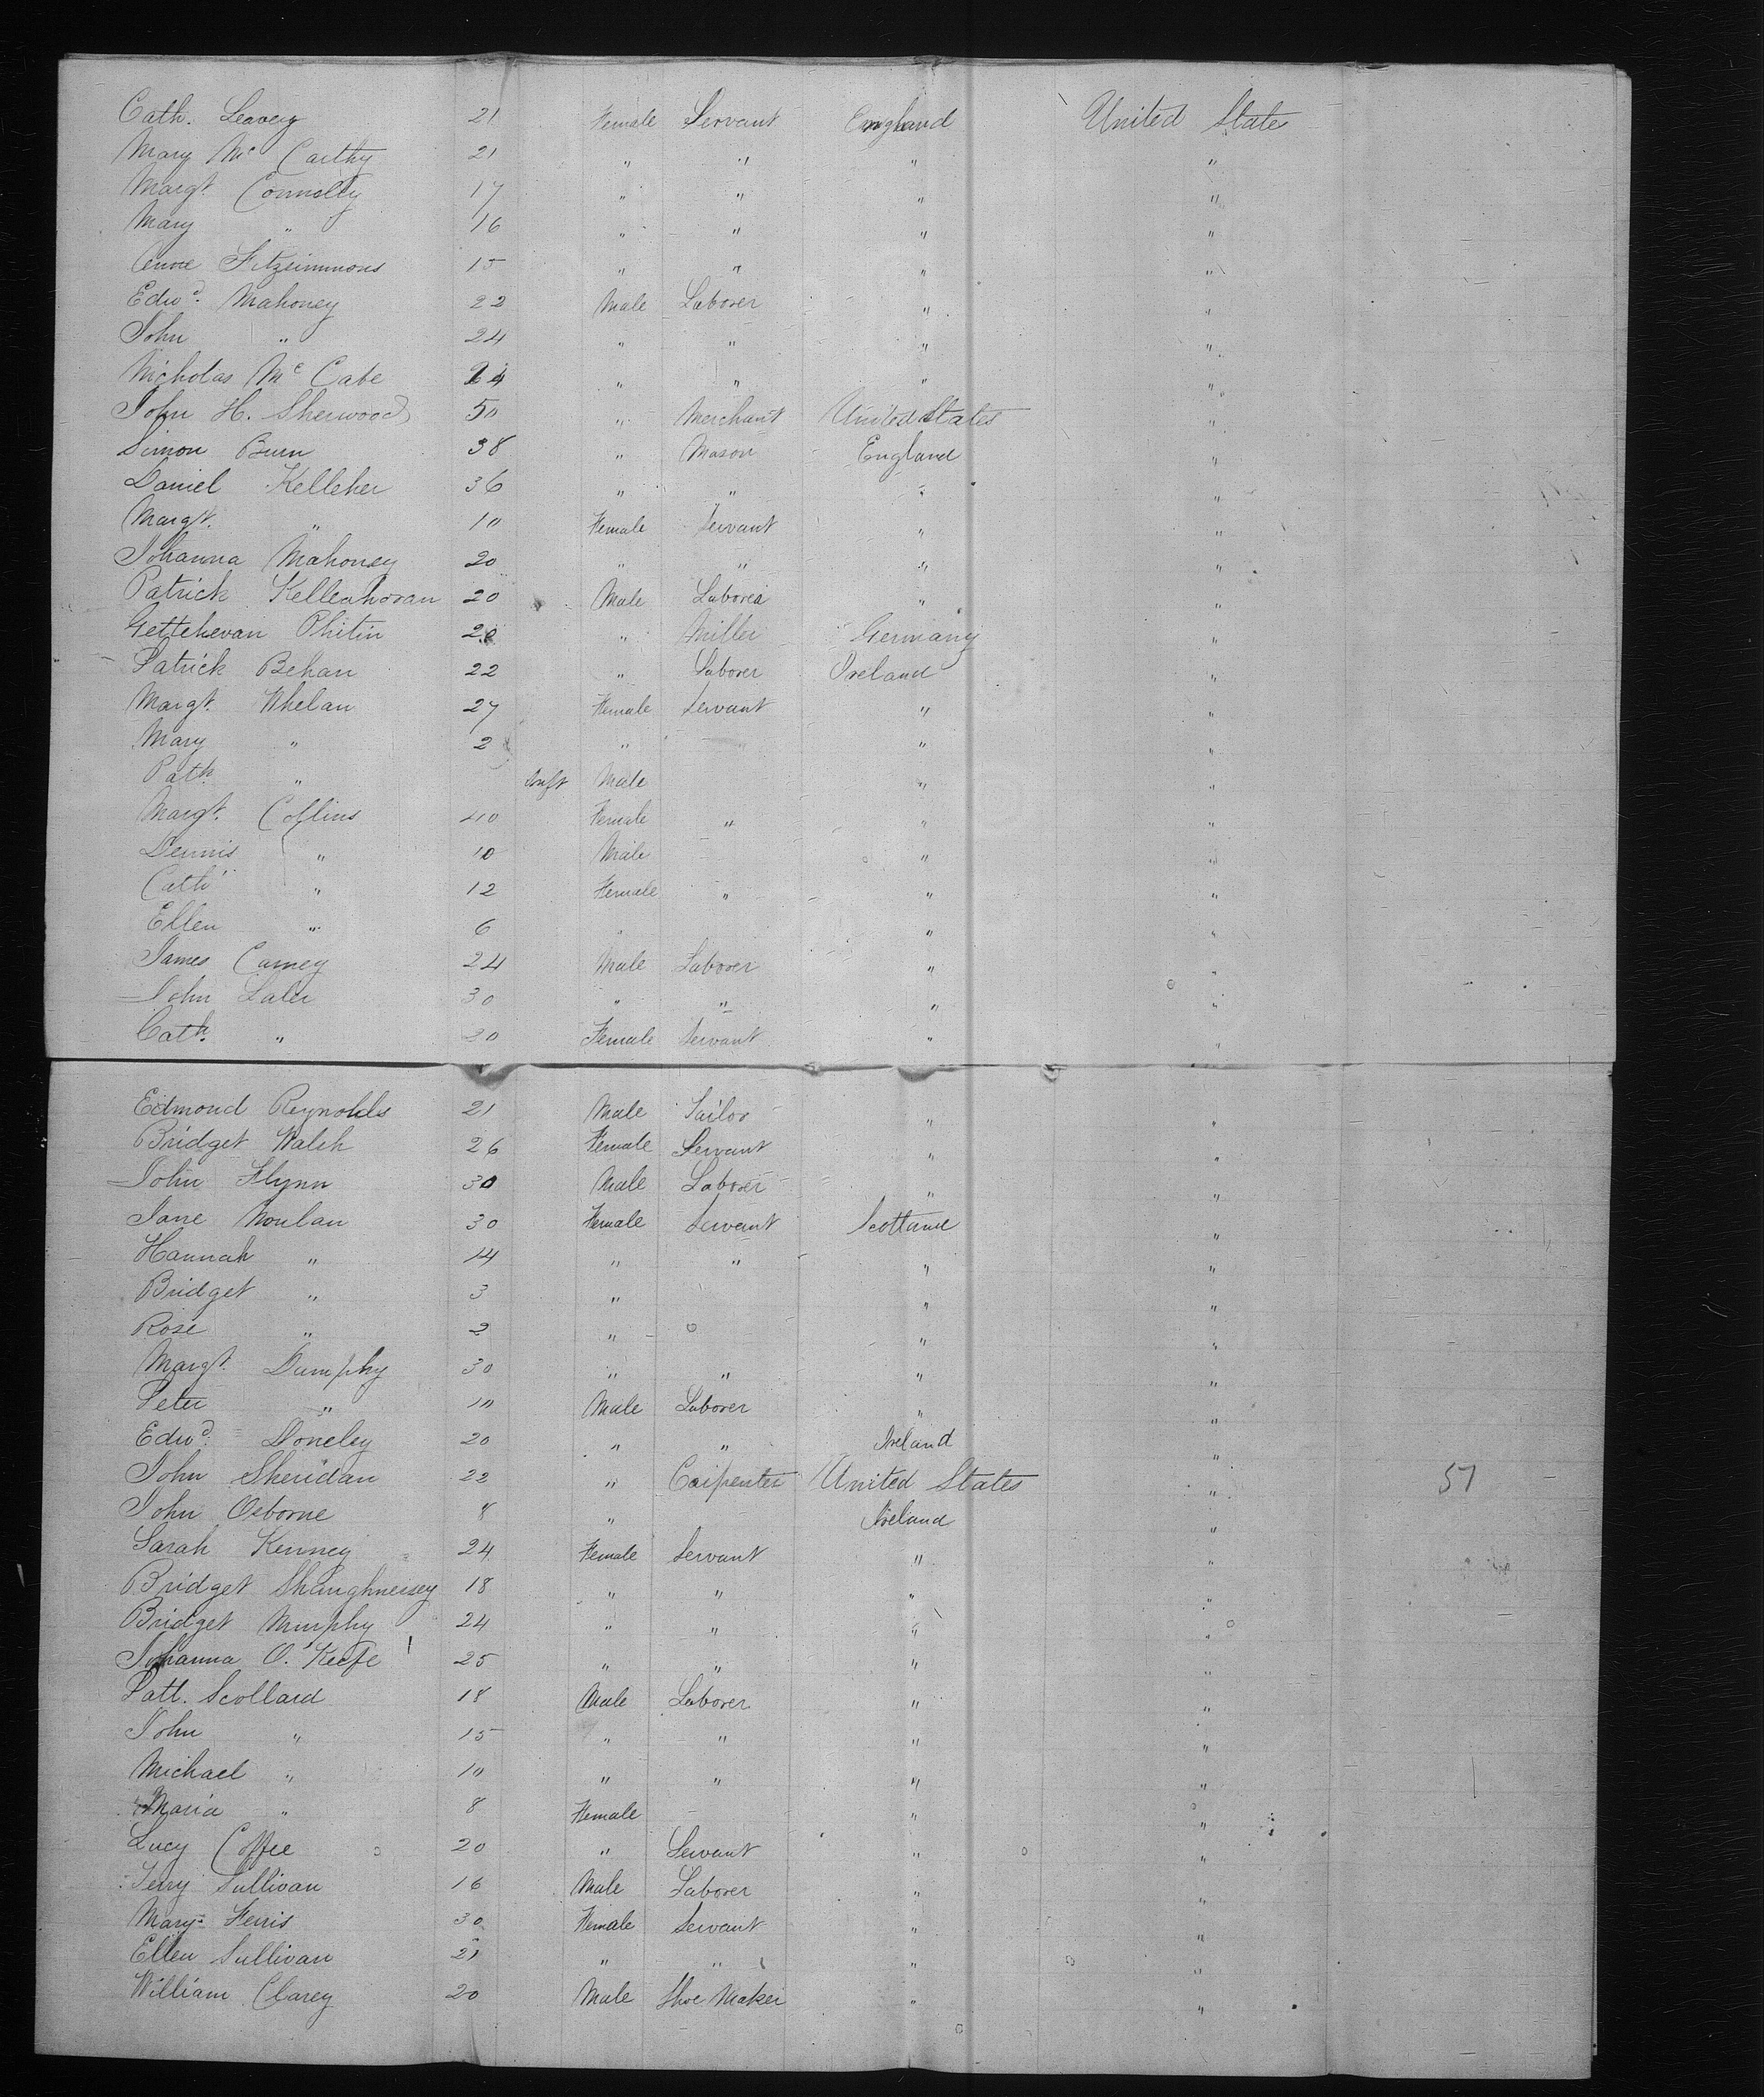 Cath. Leavey 21 Female Servant England United State
Mary Mc Carthy 21 " " " "
Margt. Connolly 17 " " " "
Mary " 16 " " " "
Anne Fitzsimmons 15 " " " "
Edwd. Mahoney 22 Male Laborer " "
John " 24 " " " "
Nicholas Mc Cabe 24 " " " "
John H. Sherwood 50 " Merchant United States "
Simon Burn 38 " Mason England "
Daniel Kelleher 36 " " " "
Margt. " 10 Female Servant " "
Johanna Mahoney 20 " " " "
Patrick Kelleahoran 20 Male Laborer " "
Gettehevan Phitin " Miller Germany "
Patrick Behan 22 " Laborer Ireland "
Margt. Whelan 27 Female Servant " "
Mary " 2 " " "
Patk. " Inft Male " "
Margt. Collins 40 Female " " "
Dennis " 10 Male " "
Cath " 12 Female " " "
Ellen " 6 " " "
James Carney 24 Male Laborer " "
John Laler 30 " " " "
Cath. " 30 Female Servant " "
Edmond Reynolds 21 Male Tailor " "
Bridget Walsh 26 Female Servant " "
John Flynn 30 Male Laborer " "
Jane Noulan 30 Female Servant Scotland "
Hannah " 14 " " " "
Bridget " 3 " " "
Rose " 2 " " "
Margt. Dumphy 30 " " " "
Peter " 10 Male Laborer " "
Edwd. Doneley 20 " " Ireland "
John Sheridan 22 " Carpenter United States " 51
John Osborne 8 " Ireland "
Sarah Kenney 24 Female Servant " "
Bridget Shaughnessey 18 " " " "
Bridget Murphy 24 " " " "
Johanna O'Keefe 25 " " " "
Patt. Scollard 18 Male Laborer " "
John " 15 " " " "
Michael " 10 " " " "
Maria " 8 Female " "
Lucy Coffee 20 " Servant " "
Jerry Sullivan 16 Male Laborer " "
Mary Ferris 30 Female Servant " "
Ellen Sullivan 21 " " " "
William Clarey 20 Male Shoe Maker " "